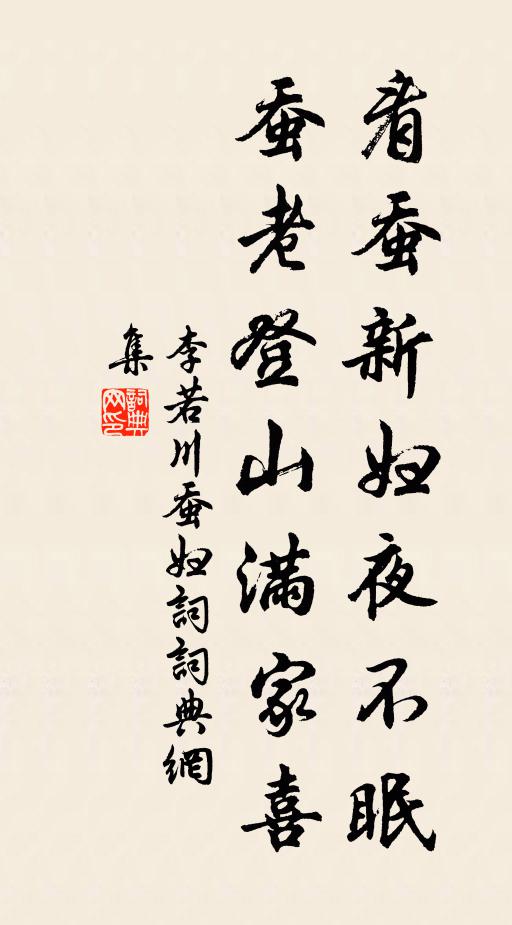 看蚕新妇夜不眠
蚕老登山满家喜
李若川蚕妇詞詞典網
集
詞典网印